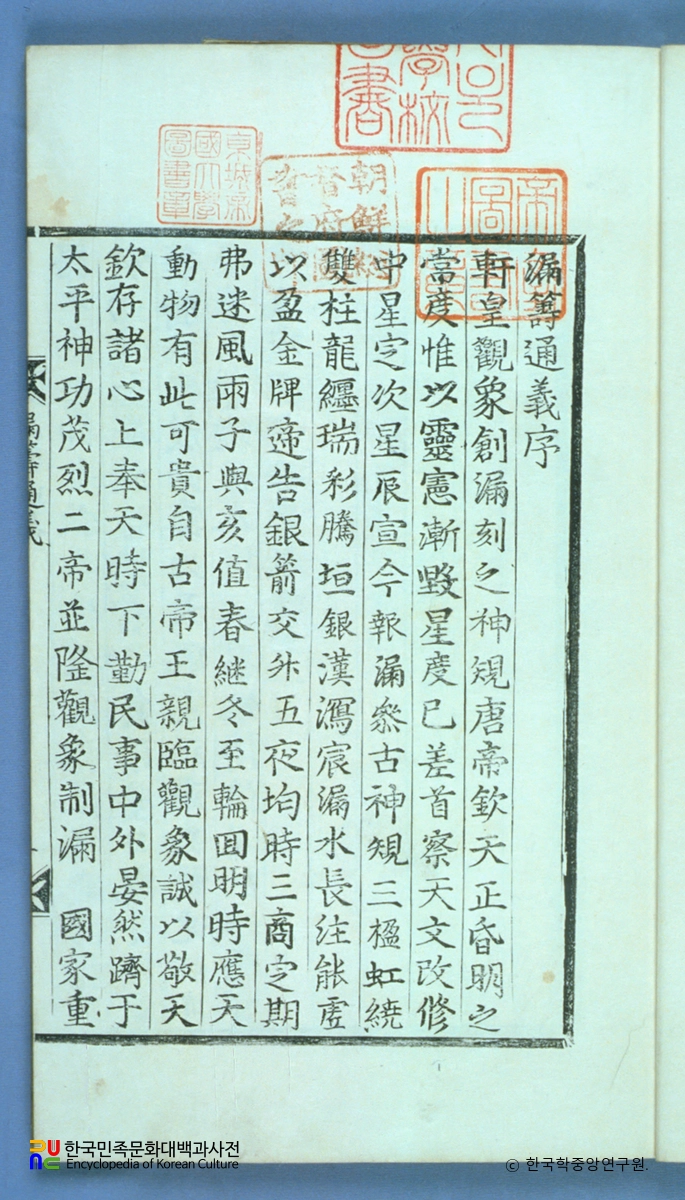 漏籌通義序
軒皇觀象創漏刻之神規唐帝欽天正昏明之
常度惟以靈憲漸毀星度已差首察天文改修
中星定次星辰宣今報漏叅古神規三楹虹繞
雙柱龍纏瑞彩騰垣銀漢瀉宸漏水長注能虛
以盈金牌遞告銀箭交舛五夜均時三商定期
弗迷風雨子與亥值春継冬至輪回明時應天
動物有此可貴自古帝王親臨觀象誠以敬天
欽存諸心上奉天時下勤民事中外晏然躋于
太平神功茂烈二帝並隆觀象制漏 國家重
漏籌通義
京城帝國大學圖書章
朝鮮總督府
한국민족문화대백과사전
Encyclopedia of Korean Culture
© 한국학중앙연구원.